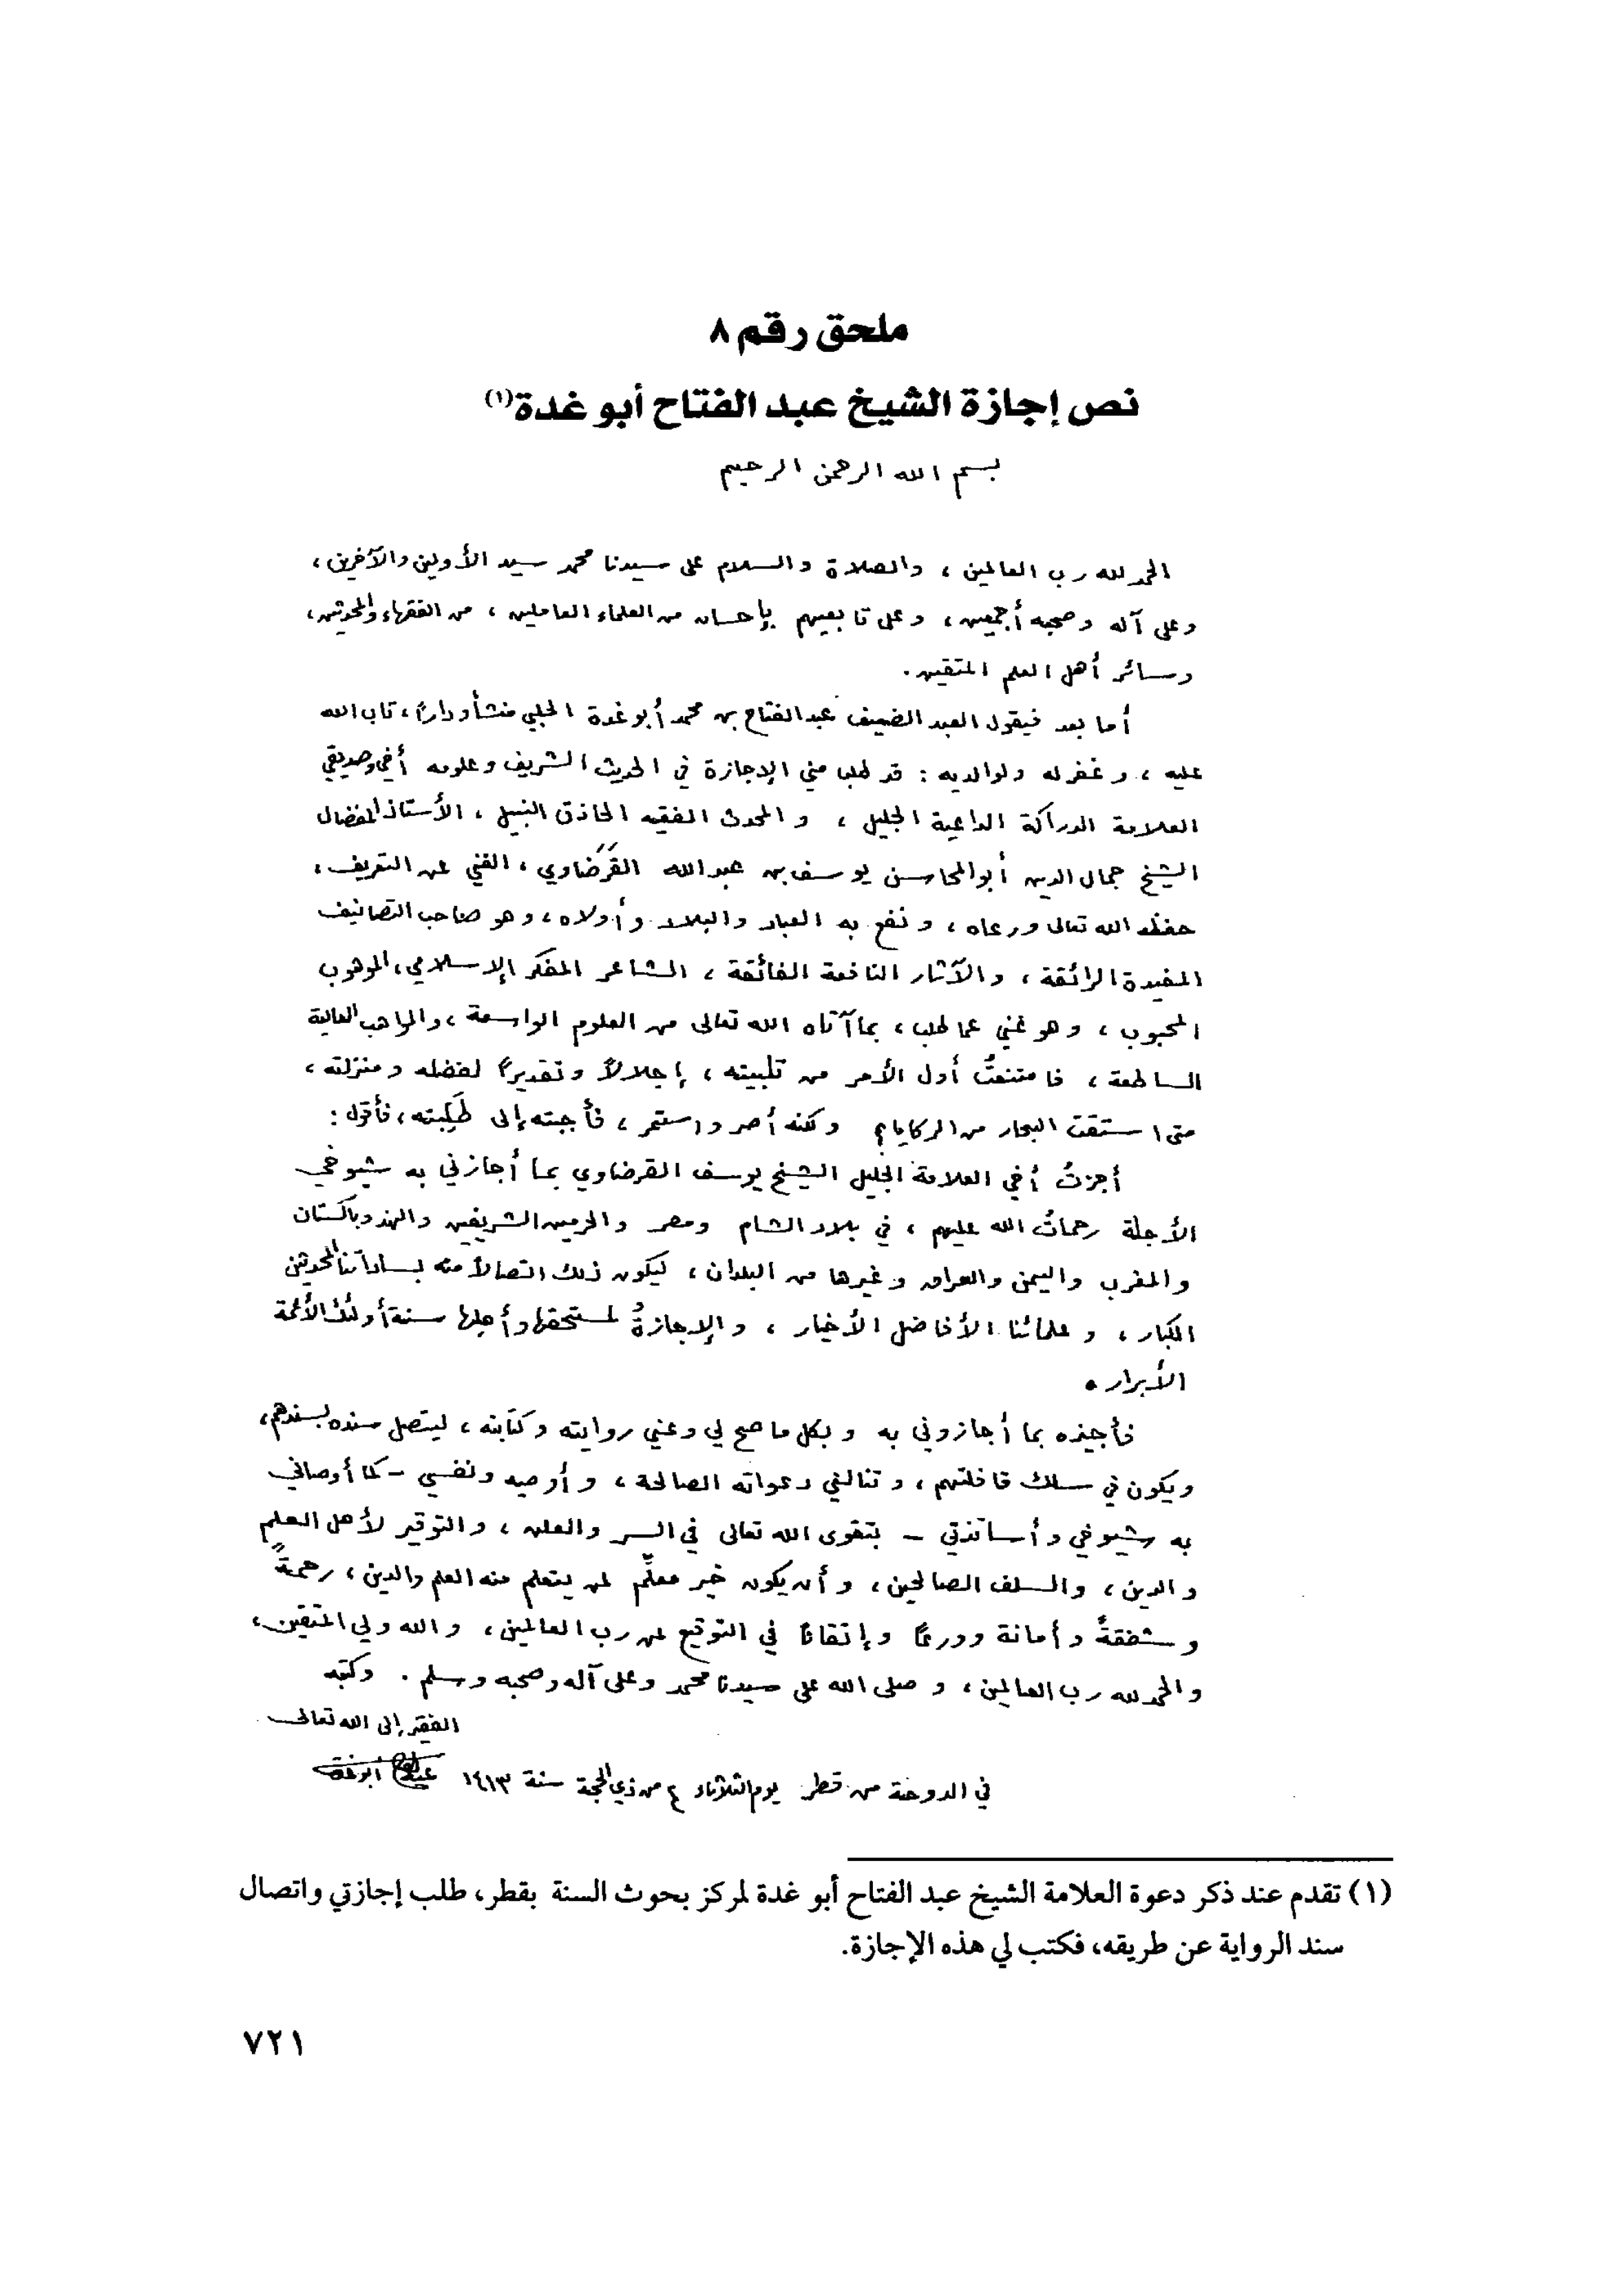 ملحق رقم ٨
نص إجازة الشيخ عبد الفتاح أبو غدة(١)
بسم الله الرحمن الرحيم
الحمد لله رب العالمين ، والصلاة والسلام على سيدنا محمد سيد الأولين والآخرين ،
وعلى آله وصحبه أجمعين ، وعلى تابعيهم بإحسان من العلماء العاملين ، من الفقهاء والمحدثين ،
وسائر أهل العلم المتقين .
أما بعد فيقول العبد الضعيف عبد الفتاح بن محمد أبو غدة الحلبي منشأ وداراً ، تاب الله
عليه ، وغفر له ولوالديه : قد طلب مني الإجازة في الحديث الشريف وعلومه أخي وصديقي
العلامة الدراكة الداعية الجليل ، والمحدث الفقيه الحاذق النبيل ، الأستاذ المفضال
الشيخ جمال الدين أبو المحاسن يوسف بن عبد الله القَرَضَاوي ، الغني عن التعريف ،
حفظه الله تعالى ورعاه ، ونفع به العباد والبلاد وأولاه ، وهو صاحب التصانيف
المفيدة الرائقة ، والآثار النافعة الفائقة ، الشاعر المفكر الإسلامي ، الموهوب
المحبوب ، وهو غني عما طلب ، بما آتاه الله تعالى من العلوم الواسعة ، والمواهب العالية
الساطعة ، فامتنعتُ أول الأمر من تلبيته ، إجلالاً وتقديراً لفضله ومنزلته ،
متى استقت البحار من الركايا؟ ولكنه أصر واستمر ، فأجبته إلى طَلِبته ، فأقول :
أجزتُ أخي العلامة الجليل الشيخ يوسف القرضاوي بما أجازني به شيوخي
الأجلة رحماتُ الله عليهم ، في بلاد الشام ومصر والحرمين الشريفين والهند وباكستان
والمغرب واليمن والعراق وغيرها من البلدان ، ليكون ذلك اتصالاً منه بساداتنا المحدثين
الكبار ، وعلمائنا الأفاضل الأخيار ، والإجازةُ لمستحقها وأهلها سنة أولئك الأئمة
الأبرار .
فأجيزه بما أجازوني به وبكل ما صح لي وعني روايته وكتابته ، ليتصل سنده بسندهم ،
ويكون في سلك قافلتهم ، وتنالني دعواته الصالحة ، وأوصيه ونفسي - كما أوصاني
به شيوخي وأساتذتي - بتقوى الله تعالى في السر والعلن ، والتوقير لأهل العلم
والدين ، والسلف الصالحين ، وأن يكون خير معلِّم لمن يتعلم منه العلم والدين ، رحمةً
وشفقةً وأمانة وورعاً وإتقاناً في التوقيع عن رب العالمين ، والله ولي المتقين ،
والحمد لله رب العالمين ، وصلى الله على سيدنا محمد وعلى آله وصحبه وسلم . وكتبه
الفقير إلى الله تعالى
في الدوحة من قطر يوم الثلاثاء ٤ من ذي الحجة سنة ١٤١٣ عبد الفتاح أبو غدة
(١) تقدم عند ذكر دعوة العلامة الشيخ عبد الفتاح أبو غدة لمركز بحوث السنة بقطر، طلب إجازتي واتصال
سند الرواية عن طريقه، فكتب لي هذه الإجازة.
٧٢١